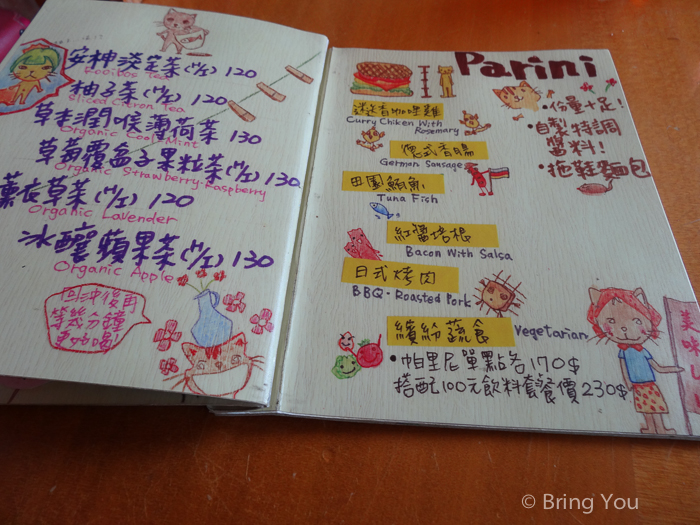 安神淡定茶(熱) 120
Rooibos Tea
柚子茶(熱) 120
Sliced Citron Tea
草本潤喉薄荷茶 130
Organic Cool Mint
草莓覆盆子果粒茶(熱) 130
Organic Strawberry-Raspberry
薰衣草茶(熱) 120
Organic Lavender
冰釀蘋果茶(熱) 130
Organic Apple
回沖後再
等幾分鐘
更好喝!
Parini
•份量十足!
•自製特調
醬料!
•拖鞋麵包
迷迭香咖哩雞
Curry Chiken With
Rosemary
德式香腸
German Sausage
田園鮪魚
Tuna Fish
紅醬培根
Bacon With Salsa
日式烤肉
BBQ-Roasted Pork
繽紛蔬食
Vegetarian
•帕里尼單點各170$
搭配100元飲料套餐價230$
美味
© Bring You